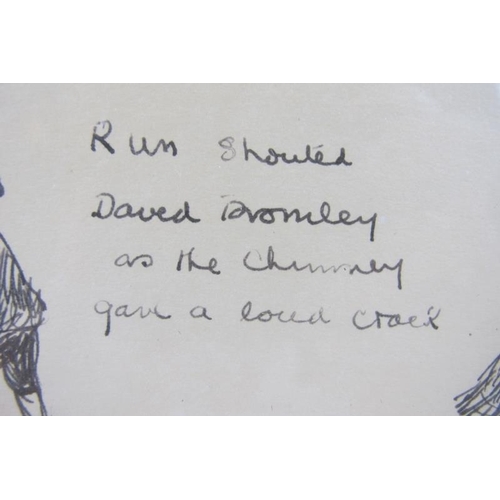 Run Shouted
David Bromley
as the Chimney
gave a loud crack